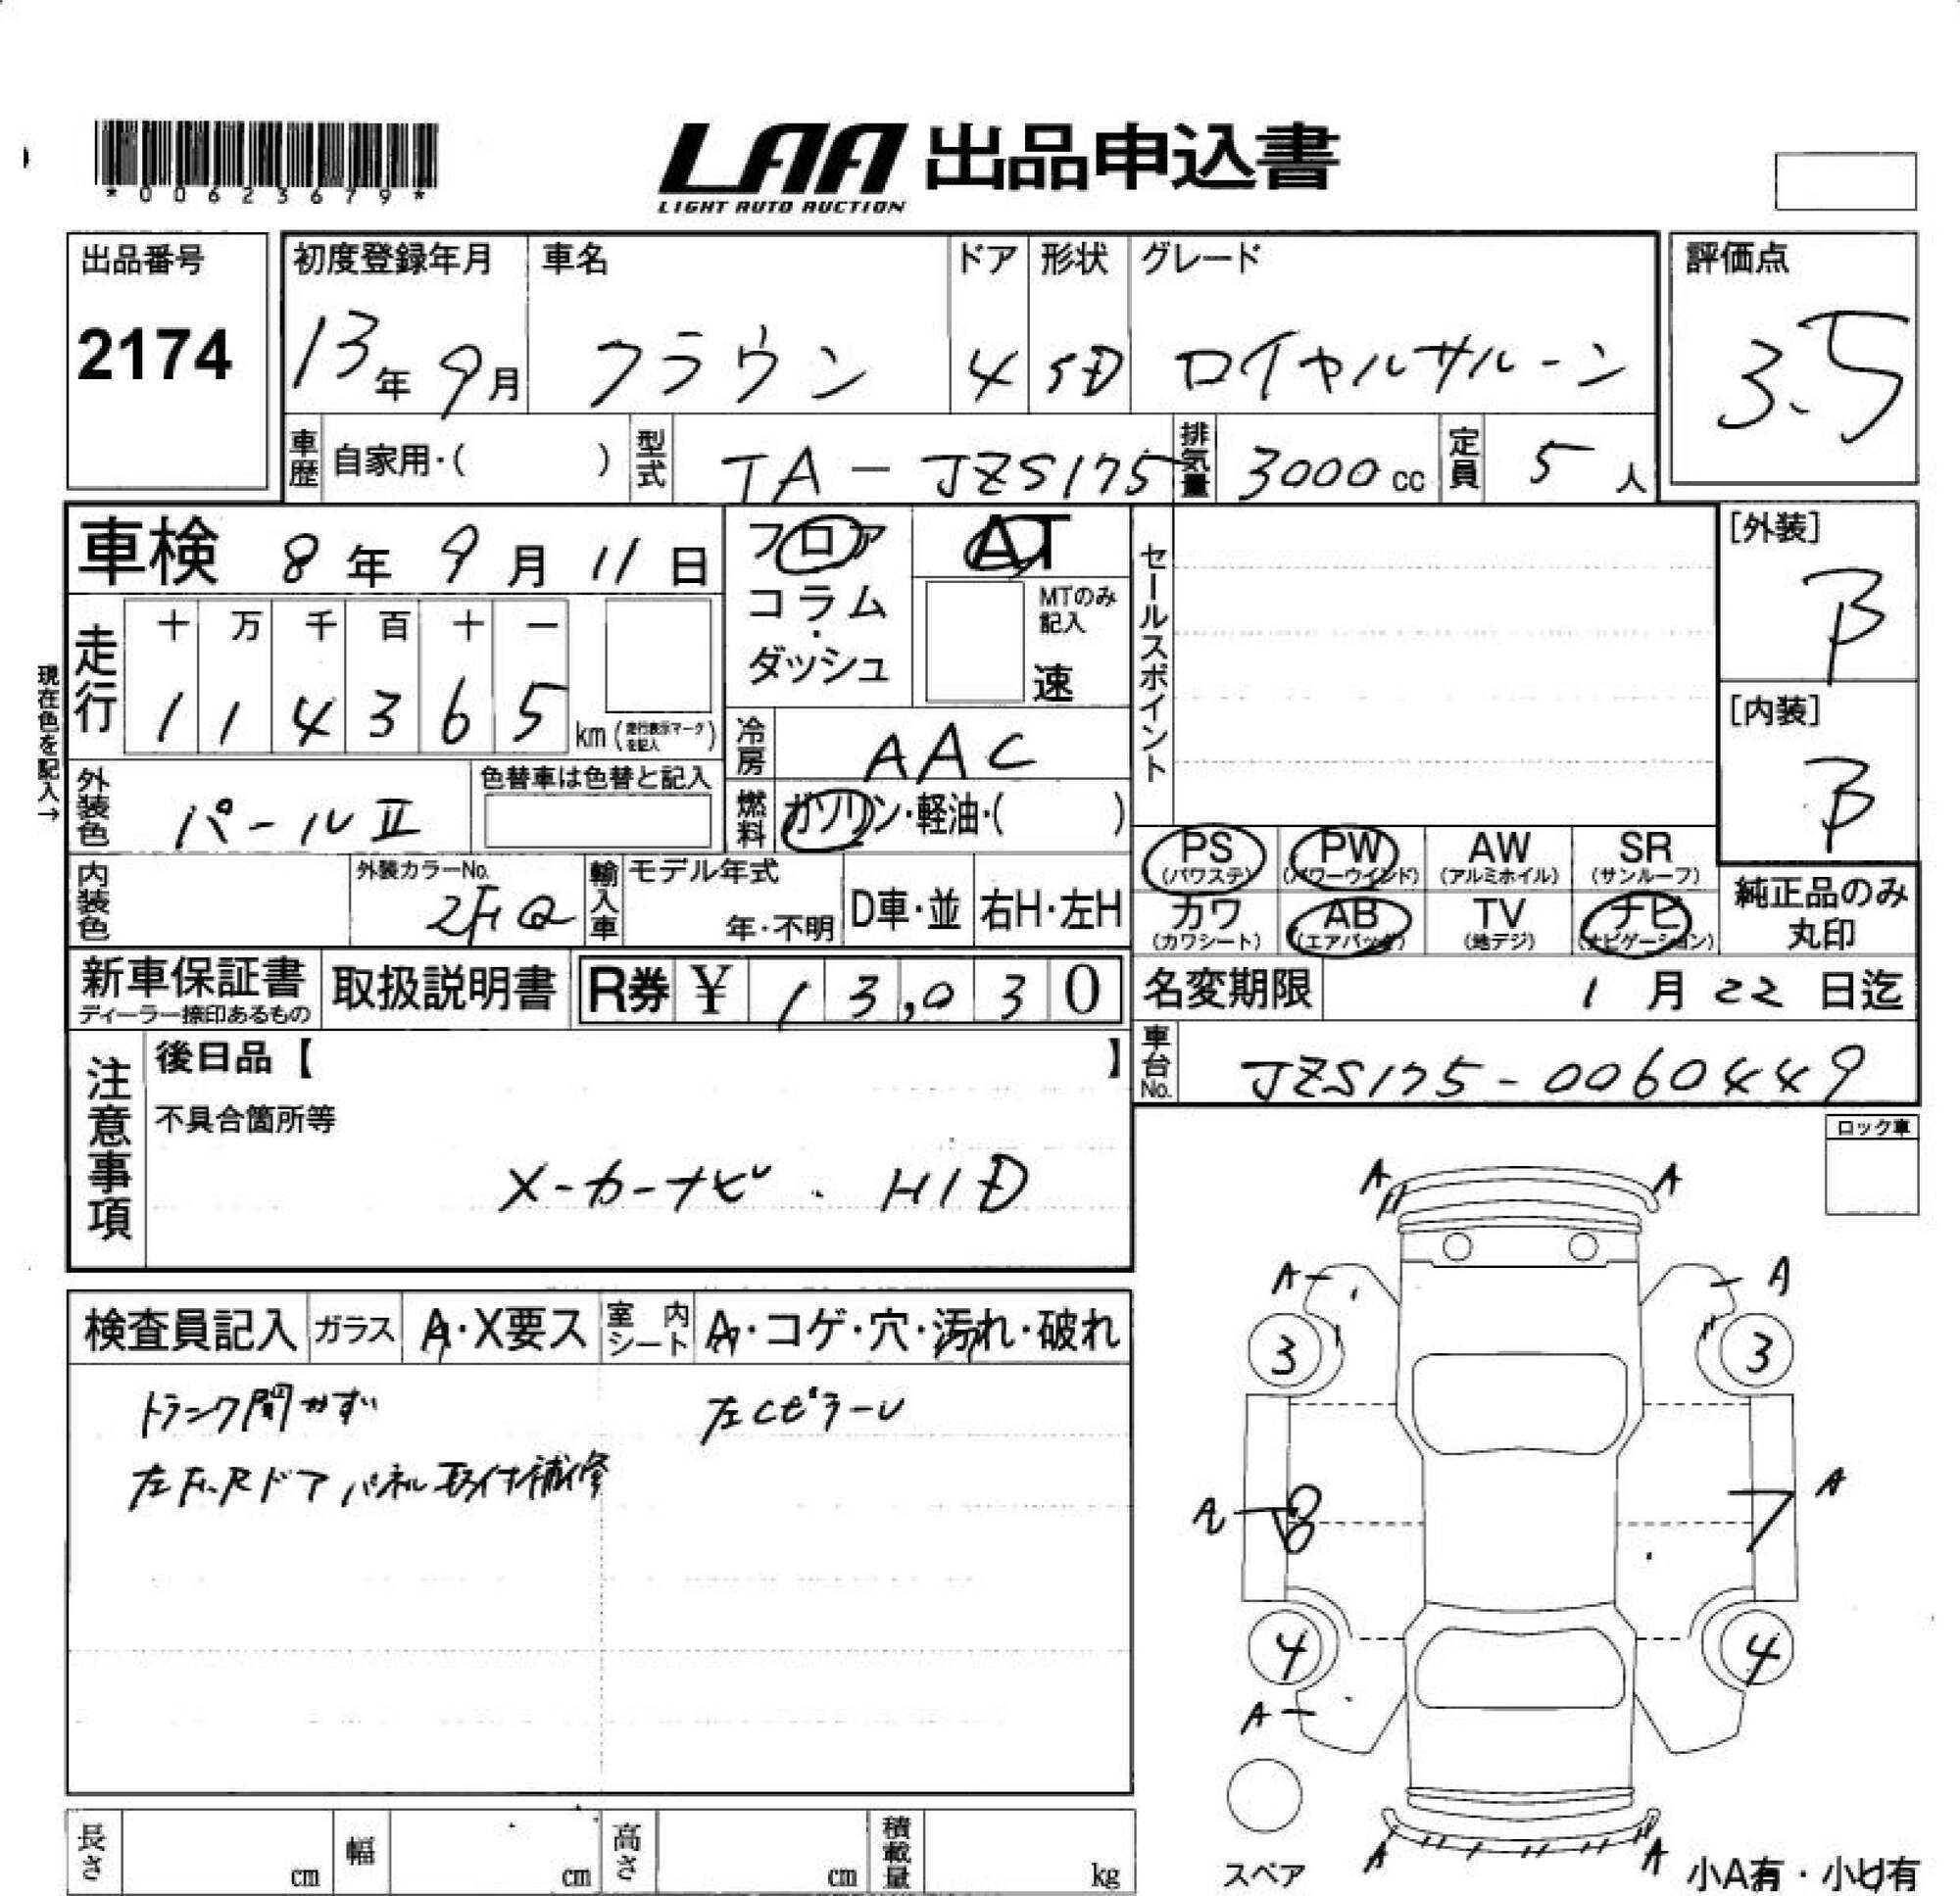 *00623679*
LAA 出品申込書
LIGHT AUTO AUCTION
出品番号
2174
初度登録年月
13年9月
車名
クラウン
ドア
4
形状
SD
グレード
ロイヤルサルーン
評価点
3.5
車歴 自家用・( )
型式 TA-JZS175
排気量 3000cc
定員 5人
車検 8年9月11日
フロア
コラム
・
ダッシュ
AT
MTのみ
記入
速
セールスポイント
[外装]
B
[内装]
B
現在色を記入→
走行
十 万 千 百 十 一
1 1 4 3 6 5
km(走行表示マークを記入)
冷房 AAC
外装色 パールⅡ
色替車は色替と記入
燃料 ガソリン・軽油・( )
PS
(パワステ)
PW
(パワーウインド)
AW
(アルミホイル)
SR
(サンルーフ)
カワ
(カワシート)
AB
(エアバッグ)
TV
(地デジ)
ナビ
(ナビゲーション)
純正品のみ
丸印
内装色
外装カラーNo.
輸入車
モデル年式
年・不明
D車・並
右H・左H
新車保証書
ディーラー捺印あるもの
取扱説明書
R券 ¥ 13,030
名変期限 1月22日迄
車台No. JZS175-0060449
注意事項
後日品【 】
不具合箇所等
メーカーナビ . HID
ロック車
検査員記入
ガラス A・X要ス
室内シート A・コゲ・穴・汚れ・破れ
トランク開かずい
左Cピラーレ
左F.Rドアパネル取付補修
A A
A A
3 3
A
8 7
4 4
A
A A
スペア
小A有・小U有
長さ cm
幅 cm
高さ cm
積載量 kg